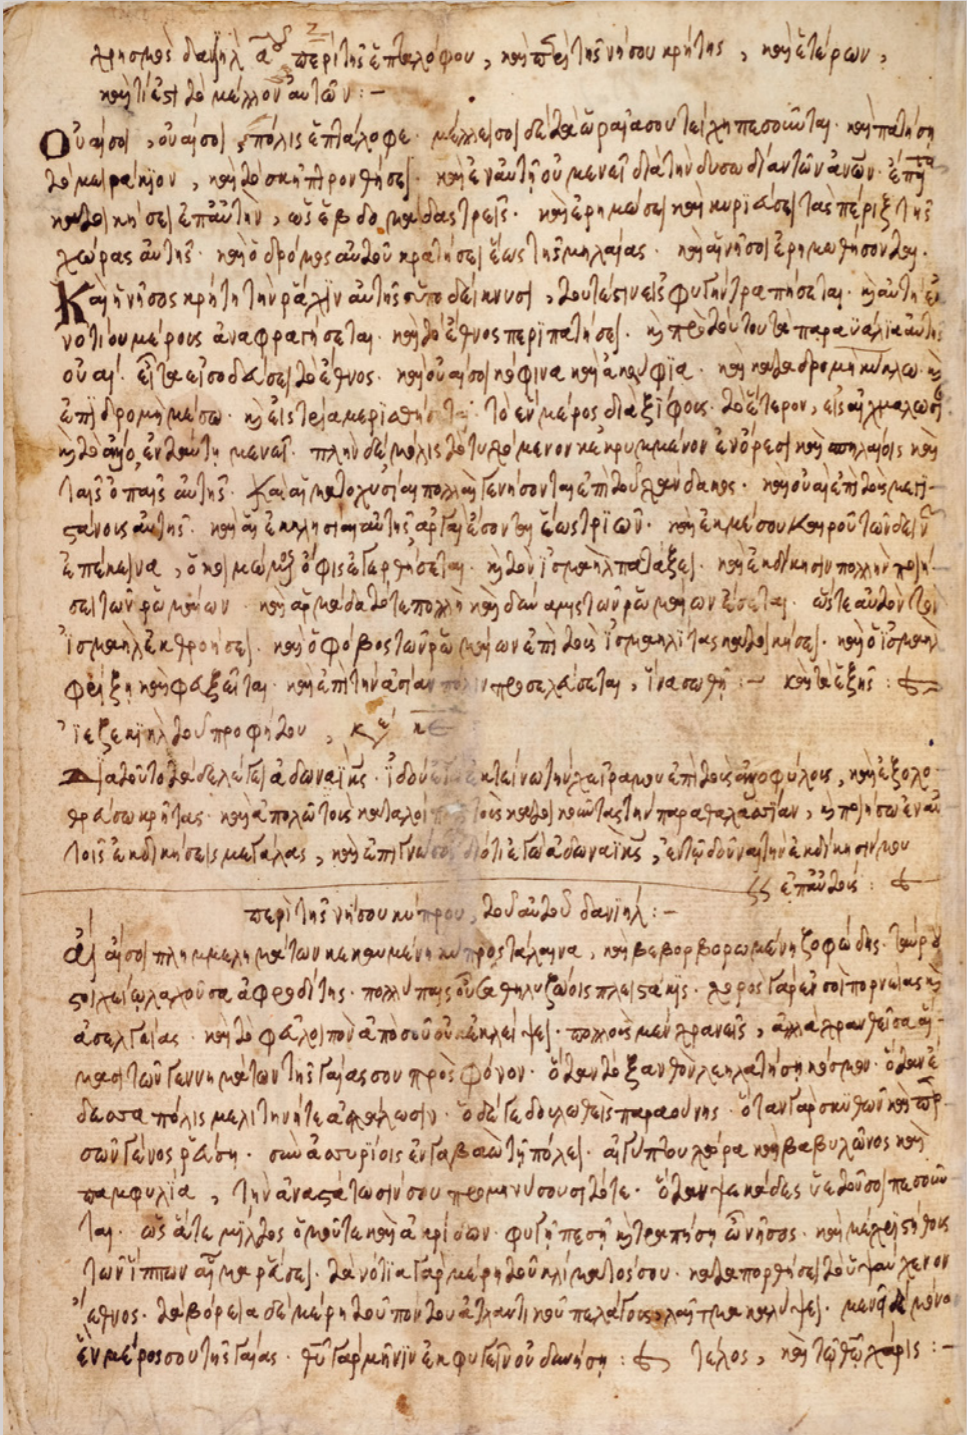 χρησμὸς δανιὴλ περὶ τῆς ἑπταλόφου, καὶ περὶ τῆς νήσου κρήτης, καὶ ἑτέρων,
καὶ τί ἐστι τὸ μέλλον αὐτῶν :-
Οὐαί σοι, οὐαί σοι πόλις ἑπτάλοφε· μέλλει σοι δὲ τὰ ὡραῖα σου τείχη πεσοῦνται· καὶ πατήσῃ
τὸ μειράκιον, καὶ τὸ σκῆπτρον θήσει· καὶ ἐν αὐτῇ οὐ μενεῖ διὰ τὴν δυσωδίαν τῶν ἀνῶν·
κατοικήσει ἐπ' αὐτὴν, ὡς ἑβδομάδας τρεῖς· καὶ ἐρημώσει καὶ κυριεύσει τὰς πέριξ τῆς
χώρας αὐτῆς· καὶ ὁ δρόμος αὐτοῦ κρατήσει ἕως τῆς μηλαίας· καὶ αἱ νῆσοι ἐρημωθήσονται.
Καὶ ἡ νῆσος κρήτη τὴν ῥάχιν αὐτῆς ὑποδείκνυσι, τουτέστιν εἰς φυγὴν τραπήσεται· κ αὐτὴ ἐκ
νοτίου μέρους ἀναφραγήσεται· καὶ τὸ ἔθνος περιπατήσει· κ πρὸ τούτου τὰ παραιγιάλια αὐτῆς
οὐαί· εἶτα εἰσοδεύσει τὸ ἔθνος· καὶ οὐαί σοι κόφινα καὶ ἀκουφία· καὶ καταδρομὴ κύκλω· κ
ἐπιδρομὴ μέσω· κ εἰς τρία μερισθήσεται· τὸ ἓν μέρος διὰ ξίφους· τὸ ἕτερον, εἰς αἰχμαλωσίαν
κ τὸ ἄλλο, ἐν ταύτῃ μενεῖ· πλὴν δὲ μόλις τὸ τυχόμενον κεκρυμμένον ἐν ὄρεσι καὶ σπηλαίοις καὶ
ταῖς ὀπαῖς αὐτῆς· Καὶ αἱματοχυσίαι πολλαὶ γενήσονται ἐπὶ τοῦ χάνδακος· καὶ οὐαὶ ἐπὶ τοὺς μεγι-
στάνους αὐτῆς· καὶ αἱ ἐκκλησίαι αὐτῆς ἀργαὶ ἔσονται ἕως τριῶν· καὶ ἐκ μέσου καιροῦ τῶν δεινῶν
ἐπέκεινα, ὁ κοιμώμενος ὄφις ἐγερθήσεται· κ τὸν ἰσμαὴλ πατάξει· καὶ ἐκδίκησιν πολλὴν ποιή-
σει τῶν ῥωμαίων· καὶ ἁρμάδα τότε πολλὴ καὶ δύναμις τῶν ῥωμαίων ἔσεται· ὥστε αὐτὸν τὸν
ἰσμαὴλ ἐκθροήσει· καὶ ὁ φόβος τῶν ῥωμαίων ἐπὶ τοὺς ἰσμαηλίτας κατοικήσει· καὶ ὁ ἰσμαὴλ
φρίξῃ καὶ φεύξεῖται· καὶ ἐπὶ τὴν ἀσίαν πάλιν προσελεύσεται, ἵνα σωθῇ :- καὶ τὰ ἑξῆς :
ἰεζεκιὴλ τοῦ προφήτου,
Διὰ τοῦτο τάδε λέγει ἀδωναῒ κς· ἰδοὺ ἐγὼ ἐκτείνω τὴν χεῖρα μου ἐπὶ τοὺς ἀλλοφύλους, καὶ ἐξολο-
θρεύσω κρήτας· καὶ ἀπολῶ τοὺς καταλοίπους τοὺς κατοικοῦντας τὴν παραθαλασσίαν, κ ποιήσω ἐν αὐ-
τοῖς ἐκδικήσεις μεγάλας, καὶ ἐπιγνώσονται διότι ἐγὼ ἀδωναῒ κς, ἐν τῷ δοῦναι τὴν ἐκδίκησίν μου
ἐπ' αὐτούς :
περὶ τῆς νήσου κύπρου, τοῦ αὐτοῦ δανιὴλ :-
Αἲ αἴ σοι πλημμελημάτων κεκαυμένη κύπρος τάλαινα, καὶ βεβορβορωμένη ζοφώδης·
στοιχεῖ ὦ λαχοῦσα ἀφροδίτης· πολλύπαις οὖσα θηλυζώοις πλειστάκις· χορὸς γάρ εἰ σοὶ πορνείας κ
ἀσελγείας· καὶ τὸ φαῦλοιπον ἀπό σου οὐκ ἐκλείψει· πολλοὺς μὲν χρανεῖς, ἀλλὰ χρανθεῖσα αἵ-
μασι τῶν γεννημάτων τῆς γαίας σου πρὸς φόνον· ὅταν τὸ ξανθὸν λεηλατήσῃ κόσμον· ὅταν ἐ
δεσσα πόλις μελιτηνή τε ἀφάλωσιν· ὁ δέ γε δουλωθεὶς παραούνης· ὅταν γὰρ σκύθων καὶ περ-
σῶν γένος ῥεύσῃ· σὺν ἀσσυρίοις ἐν γαβαὼ τῇ πόλει· αἰγύπτου χώρα καὶ βαβυλῶνος καὶ
παμφυλία, τὴν ἀναστάτωσίν σου προμηνύσουσι τότε· ὅταν ψεκάδες ὑετοῦ σοι πεσοῦν-
ται· ὡς ἅτε μίλτος ὁμοῦ τε καὶ ἀκρίδων· φυγῇ πέσῃ κ τραπήσῃ ὦ νῆσος·
τῶν ἵππων αἷμα ῥεύσει· τὰ νότια γὰρ μέρη τοῦ κλίματός σου· καταπορθήσει τὸ ὑψαύχενον
ἔθνος· τὰ βόρεια δὲ μέρη τοῦ πόντου ἀτλαντικοῦ πελάγους λαῖτμα καλύψει· μενεῖ δὲ μόνον
ἓν μέρος σου τῆς γαίας· θυ γὰρ μῆνιν ἐκφυγεῖν οὐ δυνήσῃ : τέλος, καὶ τῷ θῷ χάρις :-